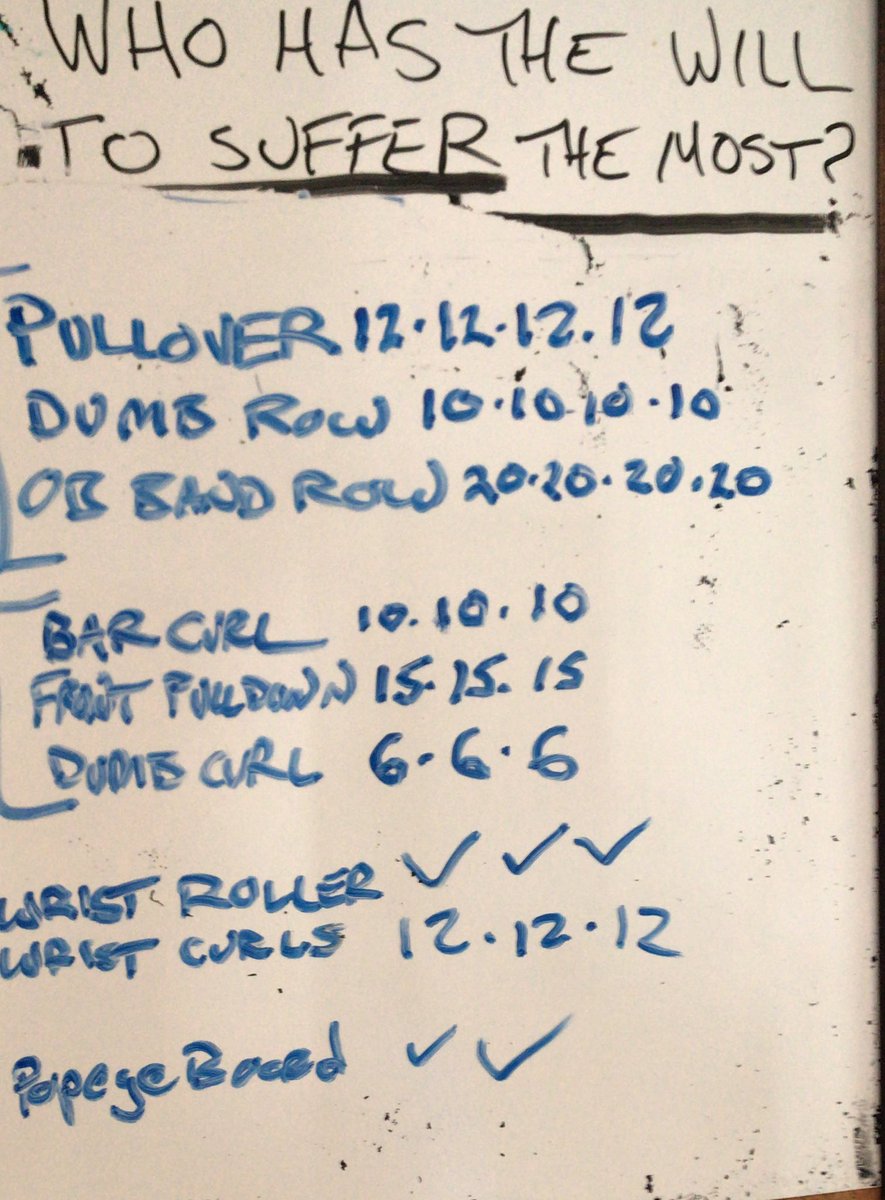 WHO HAS THE WILL
TO SUFFER THE MOST?
PULLOVER 12.12.12.12
DUMB ROW 10.10.10.10
OB BAND ROW 20.20.20.20
BAR CURL 10.10.10
FRONT PULLDOWN 15.15.15
DUMB CURL 6.6.6
WRIST ROLLER ✓ ✓ ✓
WRIST CURLS 12.12.12
Popeye Board ✓ ✓